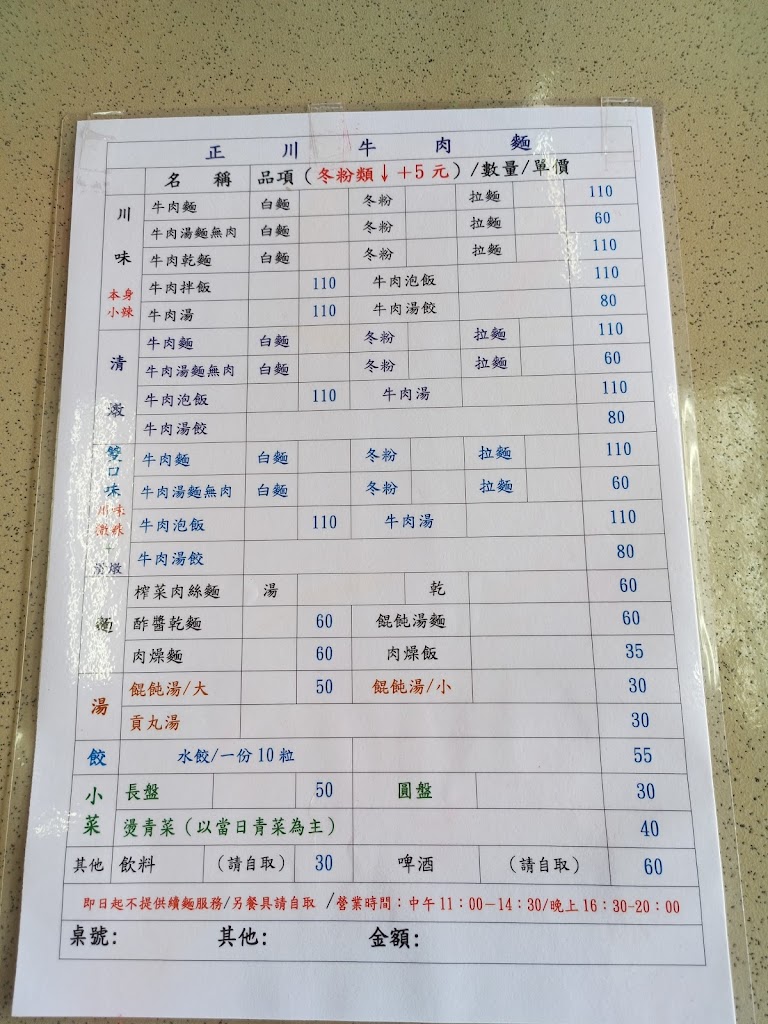 正川牛肉麵
名稱 品項（冬粉類↓＋5元）/數量/單價
川味
本身小辣
牛肉麵 白麵 冬粉 拉麵 110
牛肉湯麵無肉 白麵 冬粉 拉麵 60
牛肉乾麵 白麵 冬粉 拉麵 110
牛肉拌飯 110 牛肉泡飯 110
牛肉湯 110 牛肉湯餃 80
清燉
牛肉麵 白麵 冬粉 拉麵 110
牛肉湯麵無肉 白麵 冬粉 拉麵 60
牛肉泡飯 110 牛肉湯 110
牛肉湯餃 80
雙口味
川味
清燉
牛肉麵 白麵 冬粉 拉麵 110
牛肉湯麵無肉 白麵 冬粉 拉麵 60
牛肉泡飯 110 牛肉湯 110
牛肉湯餃 80
麵
榨菜肉絲麵 湯 乾 60
酢醬乾麵 60 餛飩湯麵 60
肉燥麵 60 肉燥飯 35
湯
餛飩湯/大 50 餛飩湯/小 30
貢丸湯 30
餃 水餃/一份10粒 55
小菜
長盤 50 圓盤 30
燙青菜（以當日青菜為主） 40
其他 飲料 （請自取） 30 啤酒 （請自取） 60
即日起不提供續麵服務/另餐具請自取 /營業時間：中午11：00－14：30/晚上16：30-20：00
桌號： 其他： 金額：